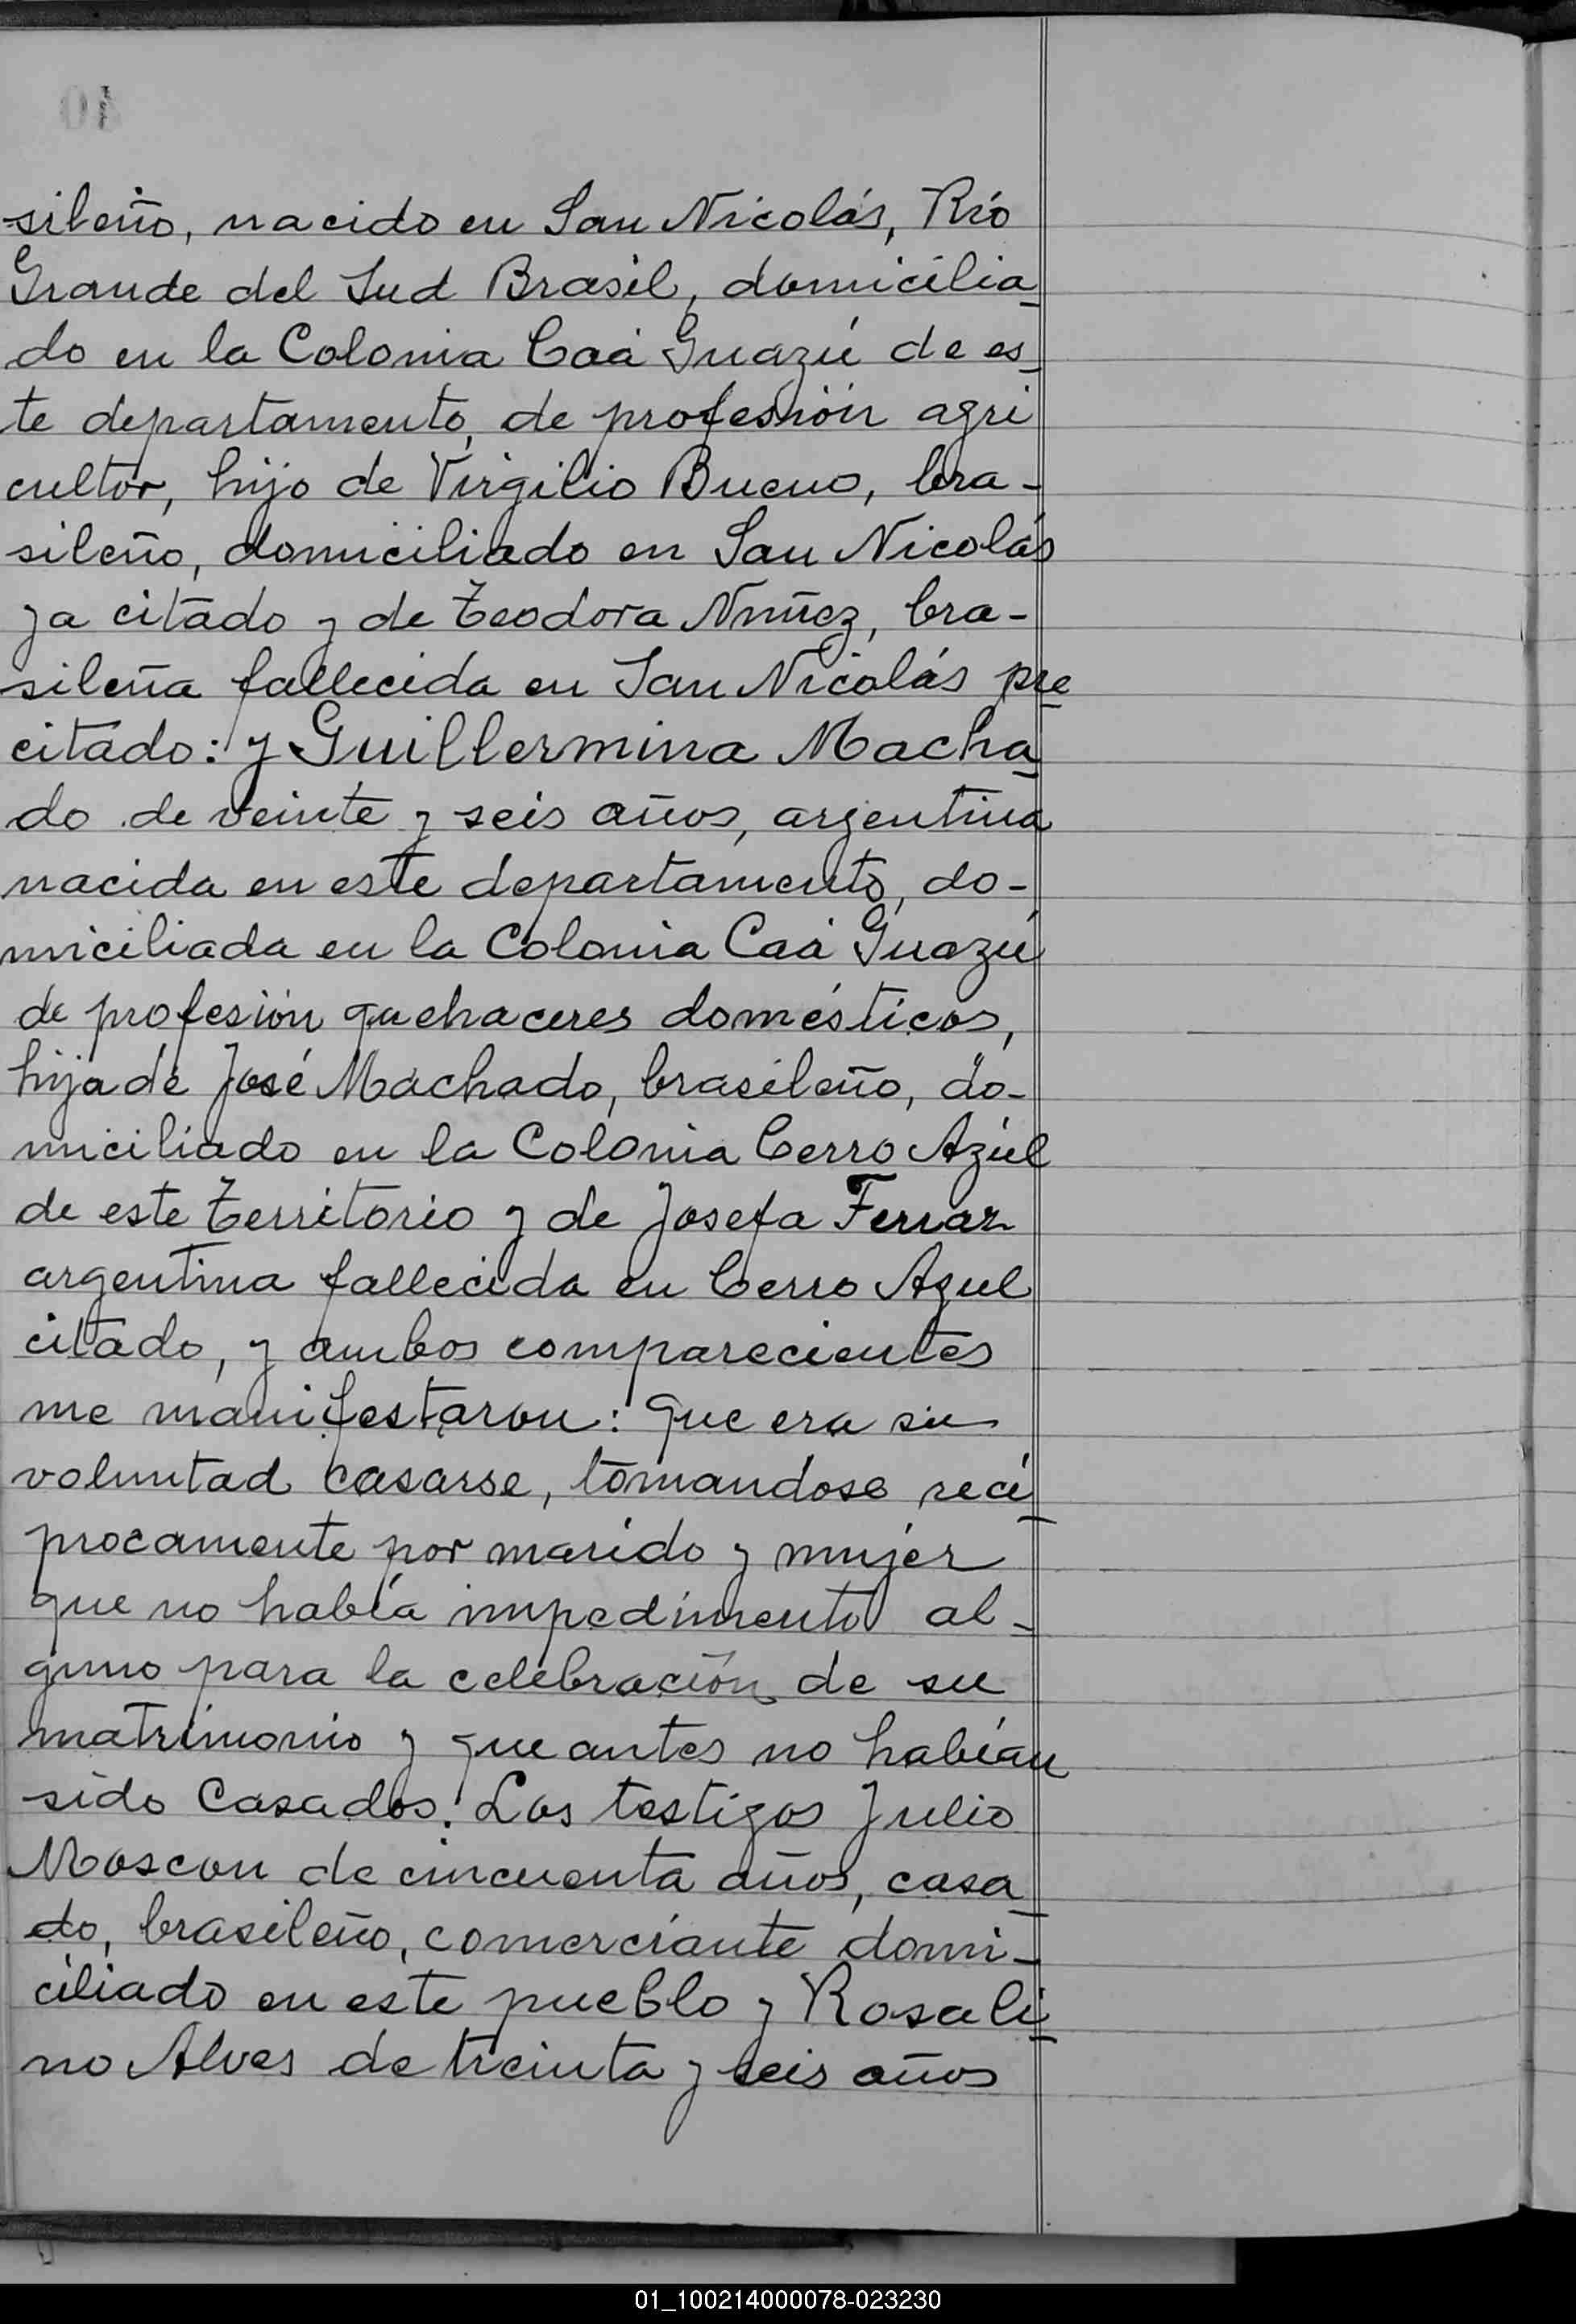 sileño, nacido en San Nicolás, Río
Grande del Sud Brasil, domicilia
do en la Colonia Caá Guazú de es
te departamento, de profesión agri
cultor, hijo de Virgilio Bueno, bra-
sileño, domiciliado en San Nicolás
ya citado y de Teodora Nuñez, bra-
sileña fallecida en San Nicolás pre
citado: y Guillermina Macha
do de veinte y seis años, argentina
nacida en este departamento, do-
miciliada en la Colonia Caá Guazú
de profesión quehaceres domésticos,
hija de José Machado, brasileño, do-
miciliado en la Colonia Cerro Azul
de este Territorio y de Josefa Ferraz
argentina fallecida en Cerro Azul
citado, y ambos comparecientes
me manifestaron: que era su
voluntad casarse, tomandose reci
procamente por marido y mujer
que no había impedimento al-
guno para la celebración de su
matrimonio y que antes no habían
sido casados. Los testigos Julio
Moscon de cincuenta años, casa
do, brasileño, comerciante domi-
ciliado en este pueblo y Rosali
no Alves de treinta y seis años
01_100214000078-023230